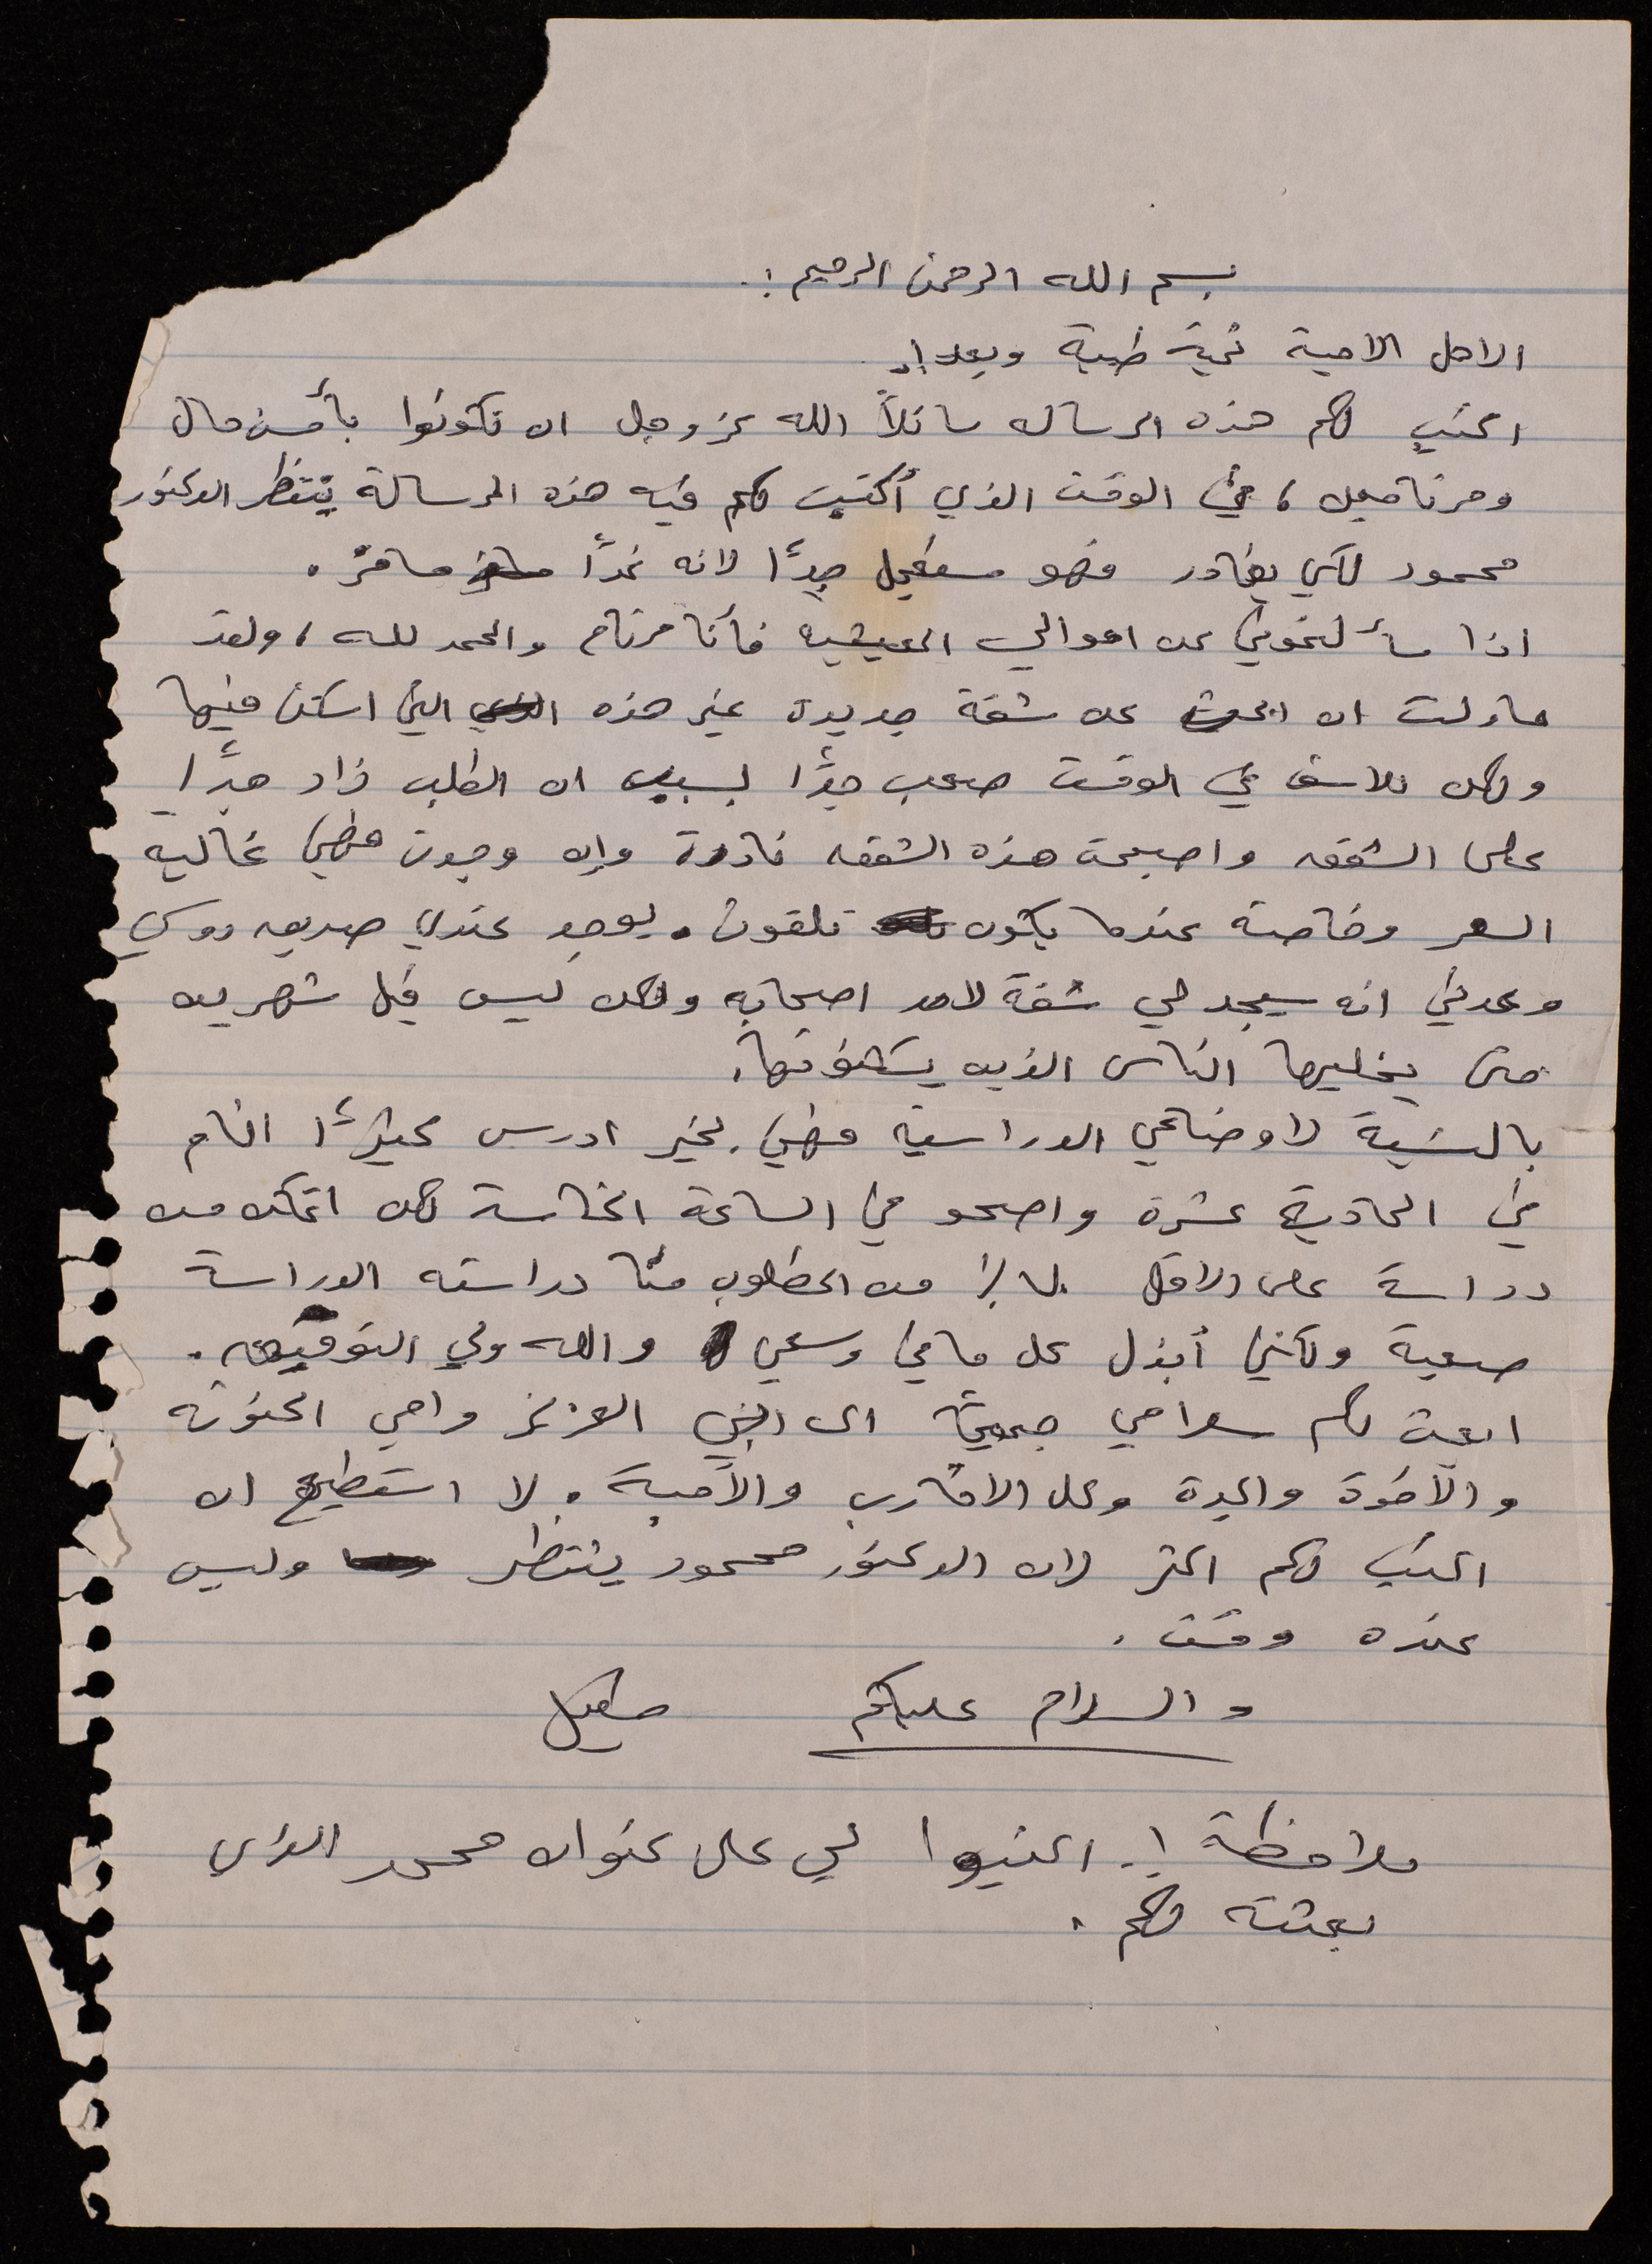 بسم الله الرحمن الرحيم :.
الاهل الاحبة تحية طيبة وبعد :.
اكتب لكم هذه الرساله سائلاً الله عز وجل ان تكونوا بأحسن حال
ومرتاحين ، في الوقت الذي أكتب لكم فيه هذه الرسالة ينتظر الدكتور
محمود لكي يغادر فهو مستعجل جدًا لانه غدًا مسافر .
اذا سألتموني عن احوالي المعيشيه فأنا مرتاح والحمد لله ، ولقد
حاولت ان ابحث عن شقة جديدة غير هذه التي اسكن فيها
ولكن للاسف في الوقت صعب جدًا بسبب ان الطلب زاد جدًا
على الشقق واصبحت هذه الشقق نادرة وإن وجدت فهي غاليه
السعر وخاصة عندما يكون تلفون . يوجد عندي صديق روسي
وعدني انه سيجد لي شقة لاحد اصحابه ولكن ليس قبل شهرين
حتى يخليها الناس الذين يسكنونها .
بالنسبة لاوضاعي الدراسية فهي بخير ادرس كثيرًا انام
في الحادية عشرة واصحو في الساعة الخامسة لكن اتمكن من
دراسة على الاقل من المطلوب منا دراسته الدراسة
صعبة ولكني أبذل كل ما في وسعي والله ولي التوفيق .
ابعث لكم سلامي جميعًا الى ابي العزيز وامي الحنونه
والأخوة والجدة وكل الاقارب والأحبة . لا استطيع ان
اكتب لكم اكثر لان الدكتور محمود ينتظر وليس
عنده وقت .
والسلام عليكم
ملاحظة :. اكتبوا لي على عنوان محمد الذي
بعثته لكم .